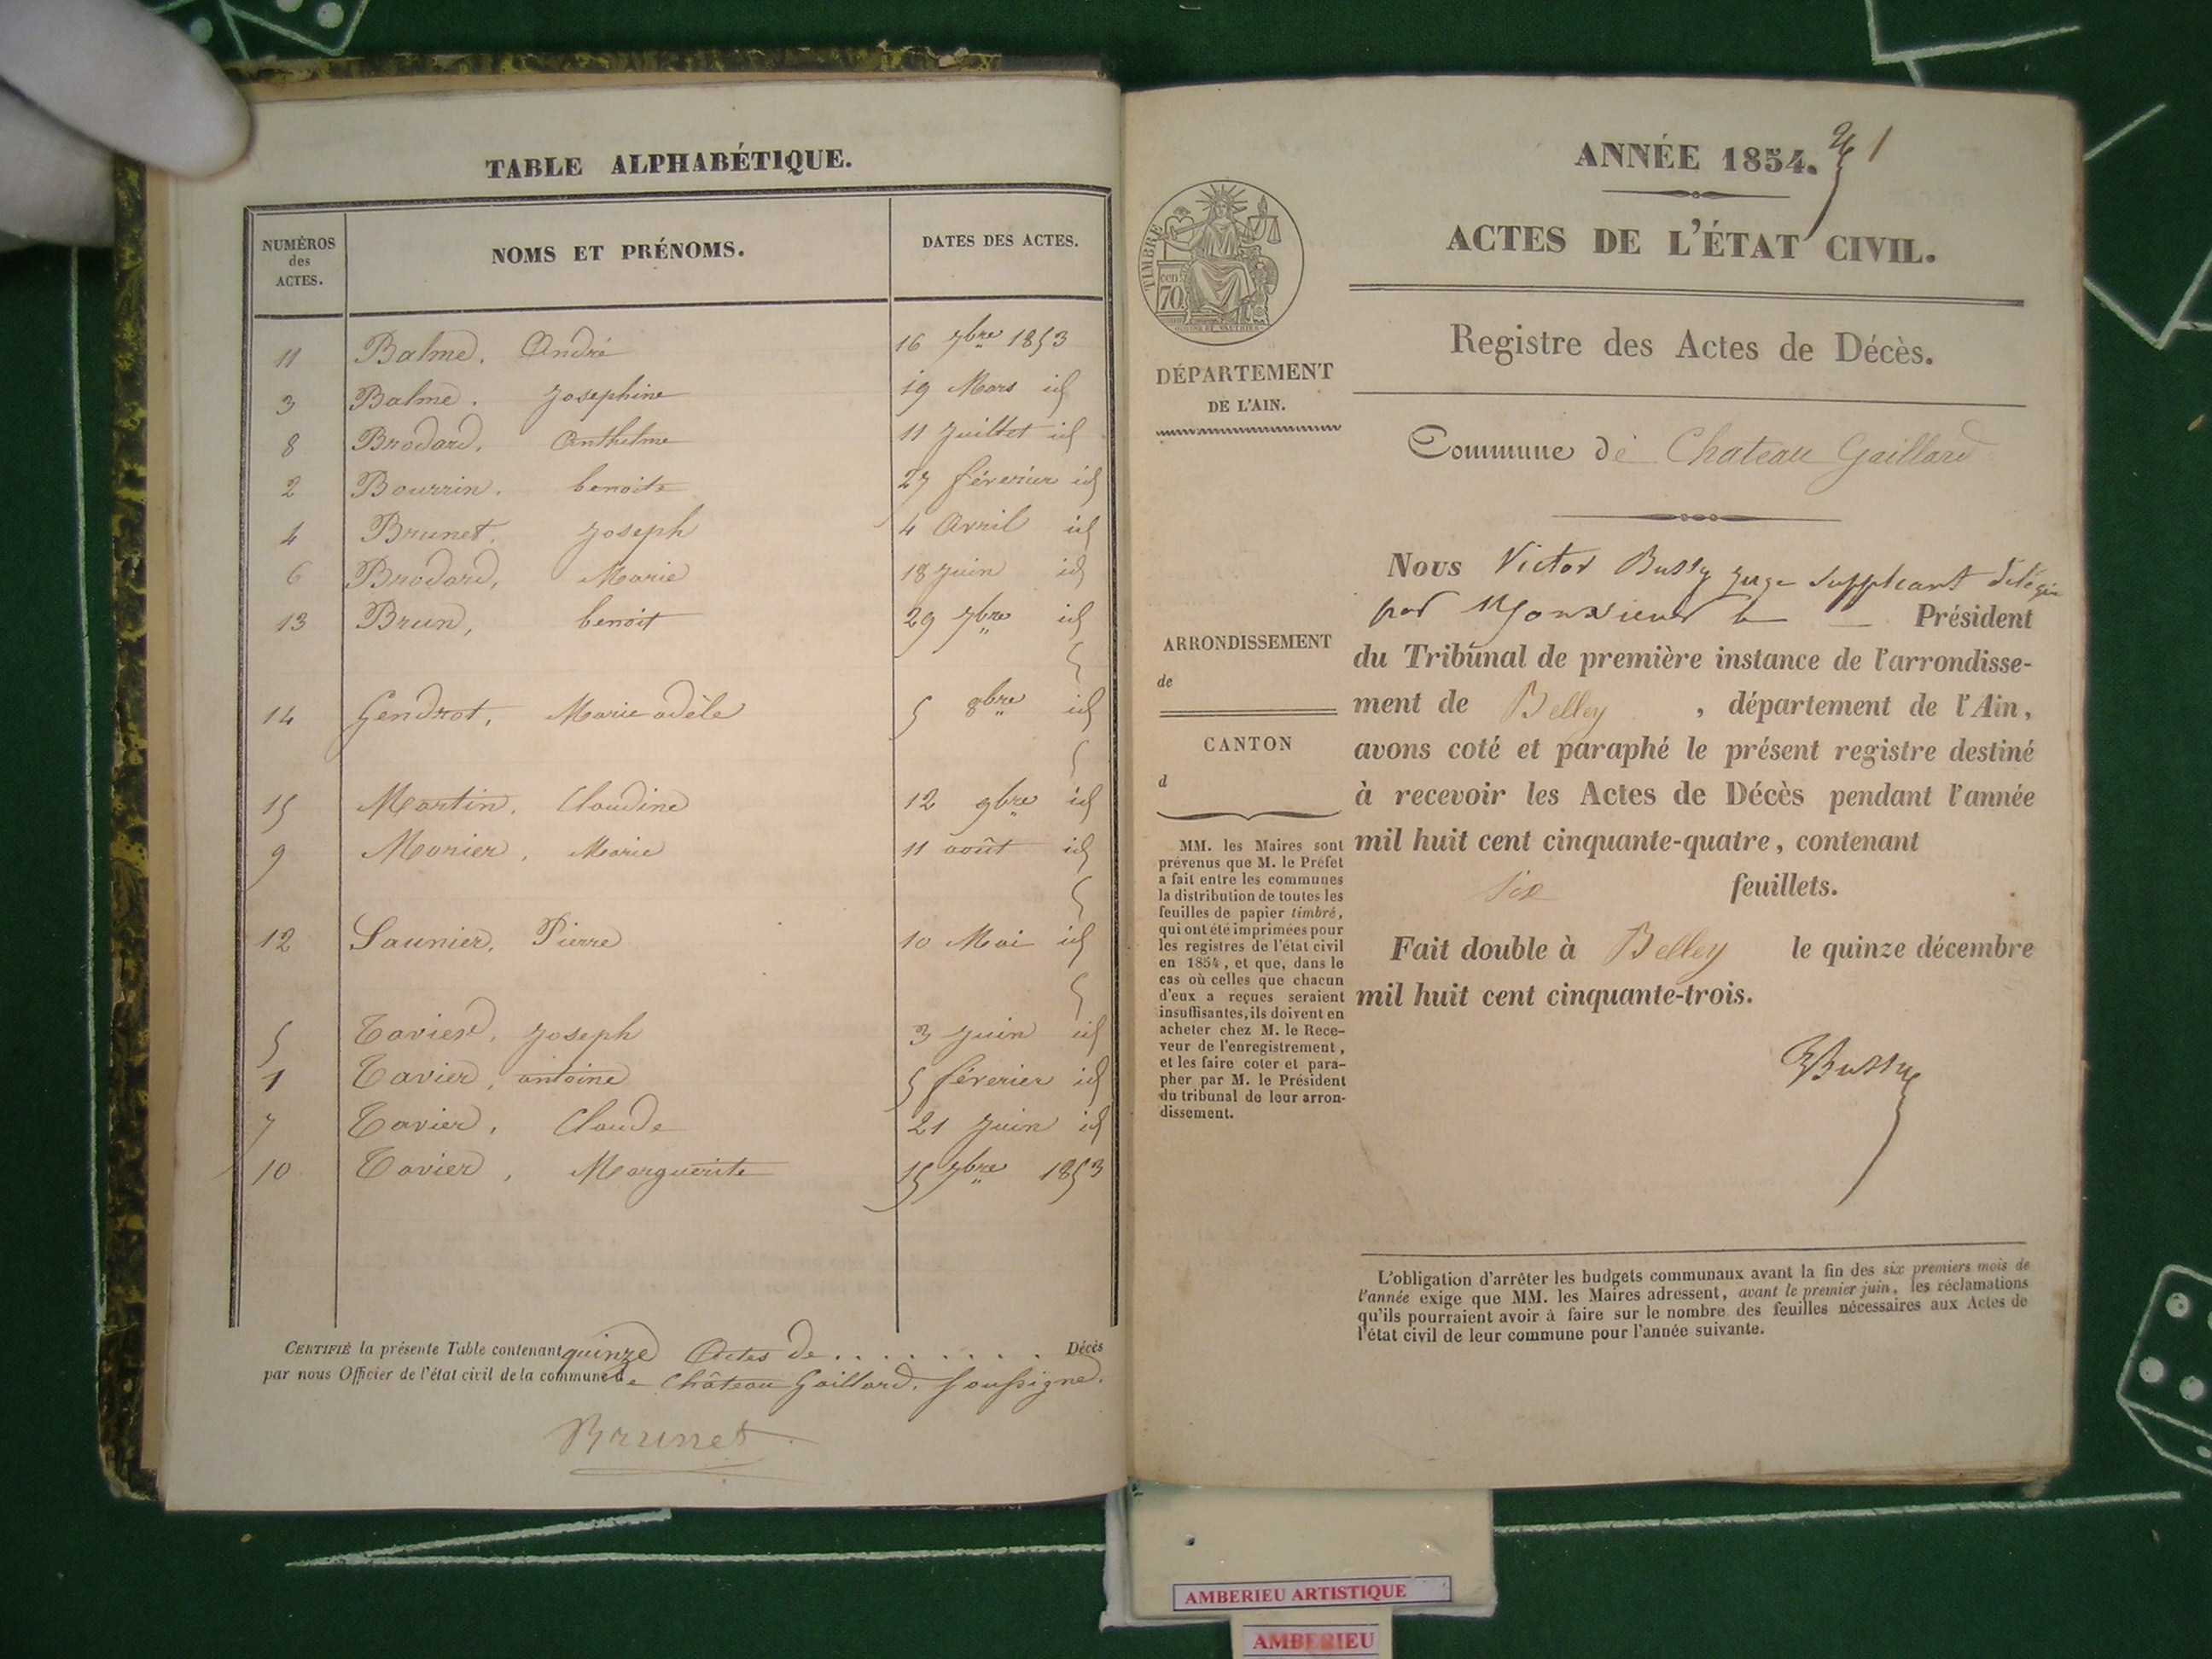 TABLE ALPHABÉTIQUE.
NUMÉROS des ACTES. NOMS ET PRÉNOMS. DATES DES ACTES.
11 Balme. André 16 7bre 1853
3 Balme. Josephine 19 Mars id
8 Brodard. Anthelme 11 Juillet id
2 Bourrin. benoite 27 féverier id
4 Brunet. Joseph 4 Avril id
6 Brodard, Marie 18 Juin id
13 Brun, benoit 29 7bre id
14 Gendrot, Marie adèle 5 8bre id
15 Martin. Claudine 12 9bre id
9 Monier, Marie 11 août id
12 Saunier, Pierre 10 Mai id
5 Tavier, Joseph 3 Juin id
1 Tavier, antoine 5 féverier id
7 Tavier, Claude 21 Juin id
10 Tavier, Marguerite 15 7bre 1853
CERTIFIÉ la présente Table contenant quinze Actes de . . . . . . . . Décès
par nous Officier de l'état civil de la commune de Château Gaillard. soussigné.
Brunet
ANNÉE 1854. 1
ACTES DE L'ÉTAT CIVIL.
Registre des Actes de Décès.
TIMBRE
70 cen.
DÉPARTEMENT
DE L'AIN.
Commune de Chateau Gaillard
ARRONDISSEMENT
de
CANTON
d
MM. les Maires sont
prévenus que M. le Préfet
a fait entre les communes
la distribution de toutes les
feuilles de papier timbré,
qui ont été imprimées pour
les registres de l'état civil
en 1854, et que, dans le
cas où celles que chacun
d'eux a reçues seraient
insuffisantes, ils doivent en
acheter chez M. le Rece-
veur de l'enregistrement,
et les faire coter et para-
pher par M. le Président
du tribunal de leur arron-
dissement.
Nous Victor Bussy juge suppléant délégué
par Monsieur le Président
du Tribunal de première instance de l'arrondisse-
ment de Belley, département de l'Ain,
avons coté et paraphé le présent registre destiné
à recevoir les Actes de Décès pendant l'année
mil huit cent cinquante-quatre, contenant
six feuillets.
Fait double à Belley le quinze décembre
mil huit cent cinquante-trois.
VBussy
L'obligation d'arrêter les budgets communaux avant la fin des six premiers mois de
l'année exige que MM. les Maires adressent, avant le premier juin, les réclamations
qu'ils pourraient avoir à faire sur le nombre des feuilles nécessaires aux Actes de
l'état civil de leur commune pour l'année suivante.
AMBERIEU ARTISTIQUE
AMBERIEU